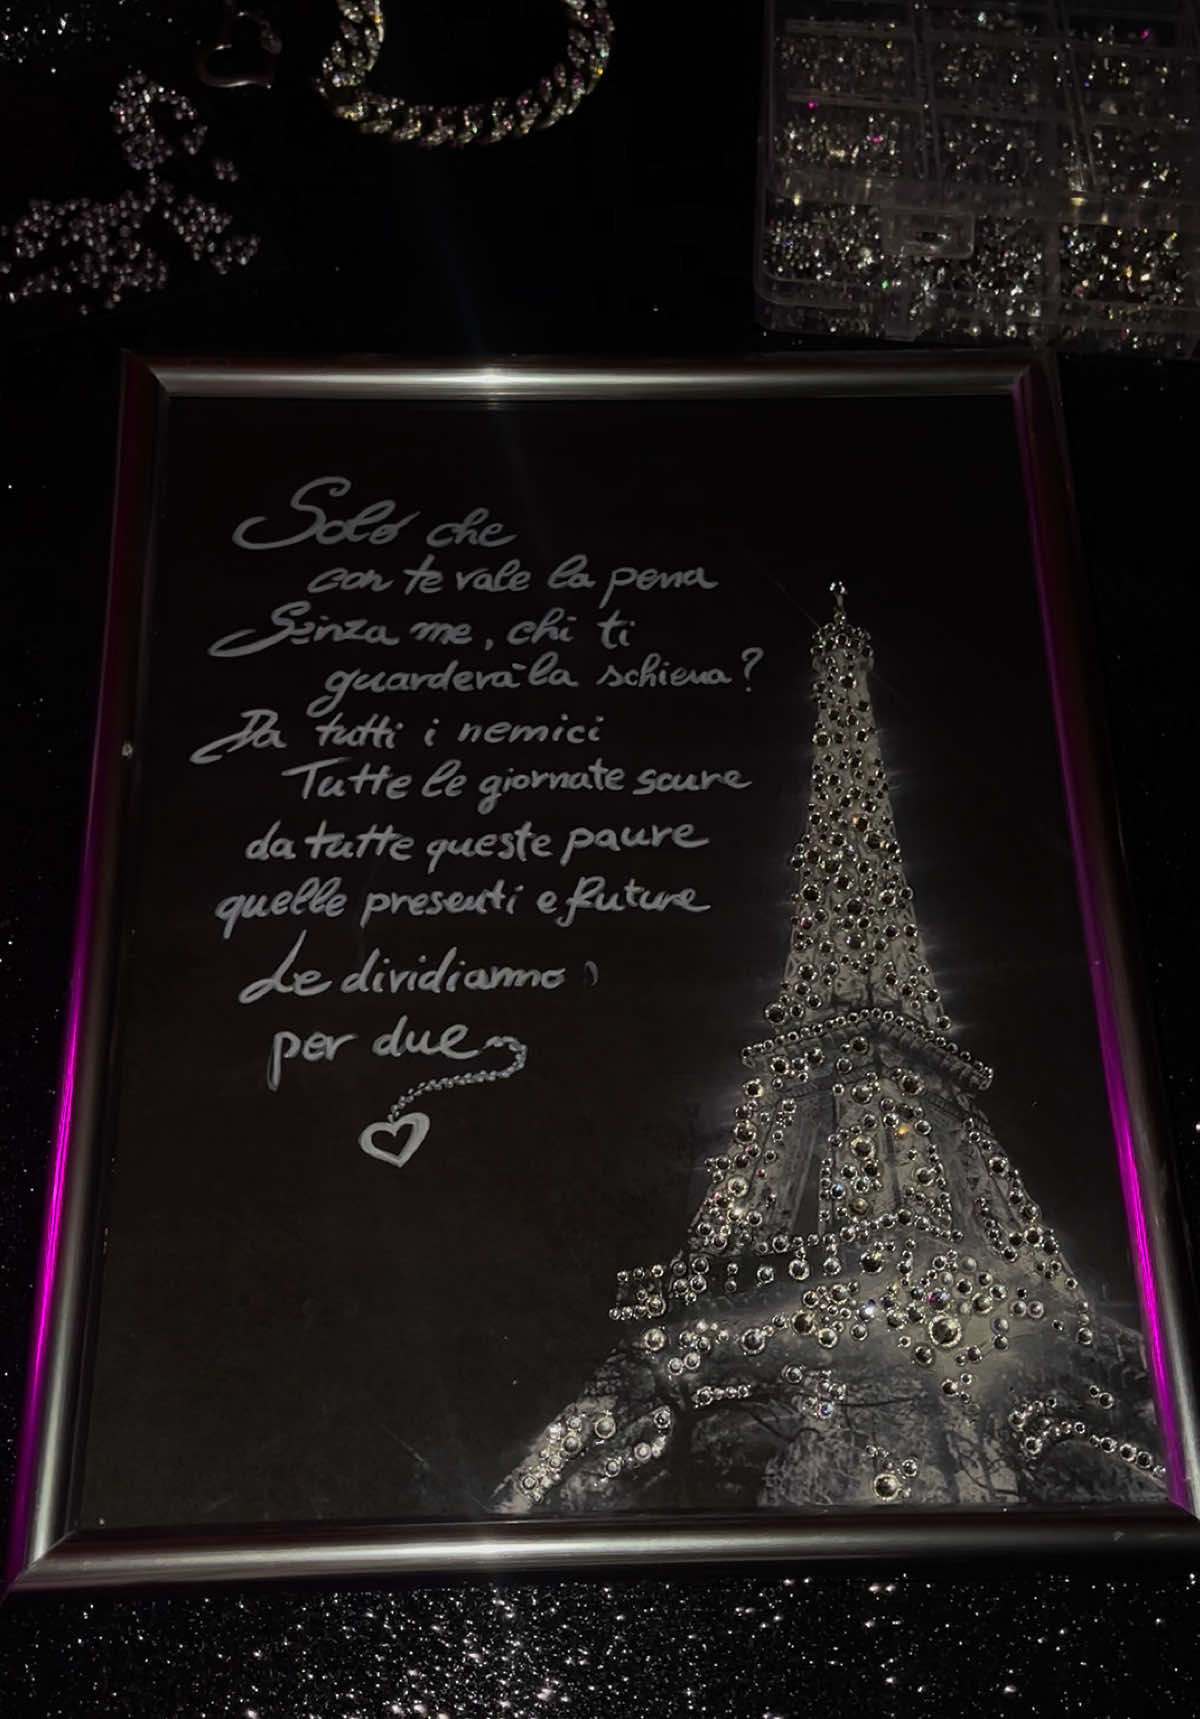 Solo che
con te vale la pena
Senza me, chi ti
guarderà la schiena?
Da tutti i nemici
Tutte le giornate scure
da tutte queste paure
quelle presenti e future
Le dividiamo
per due